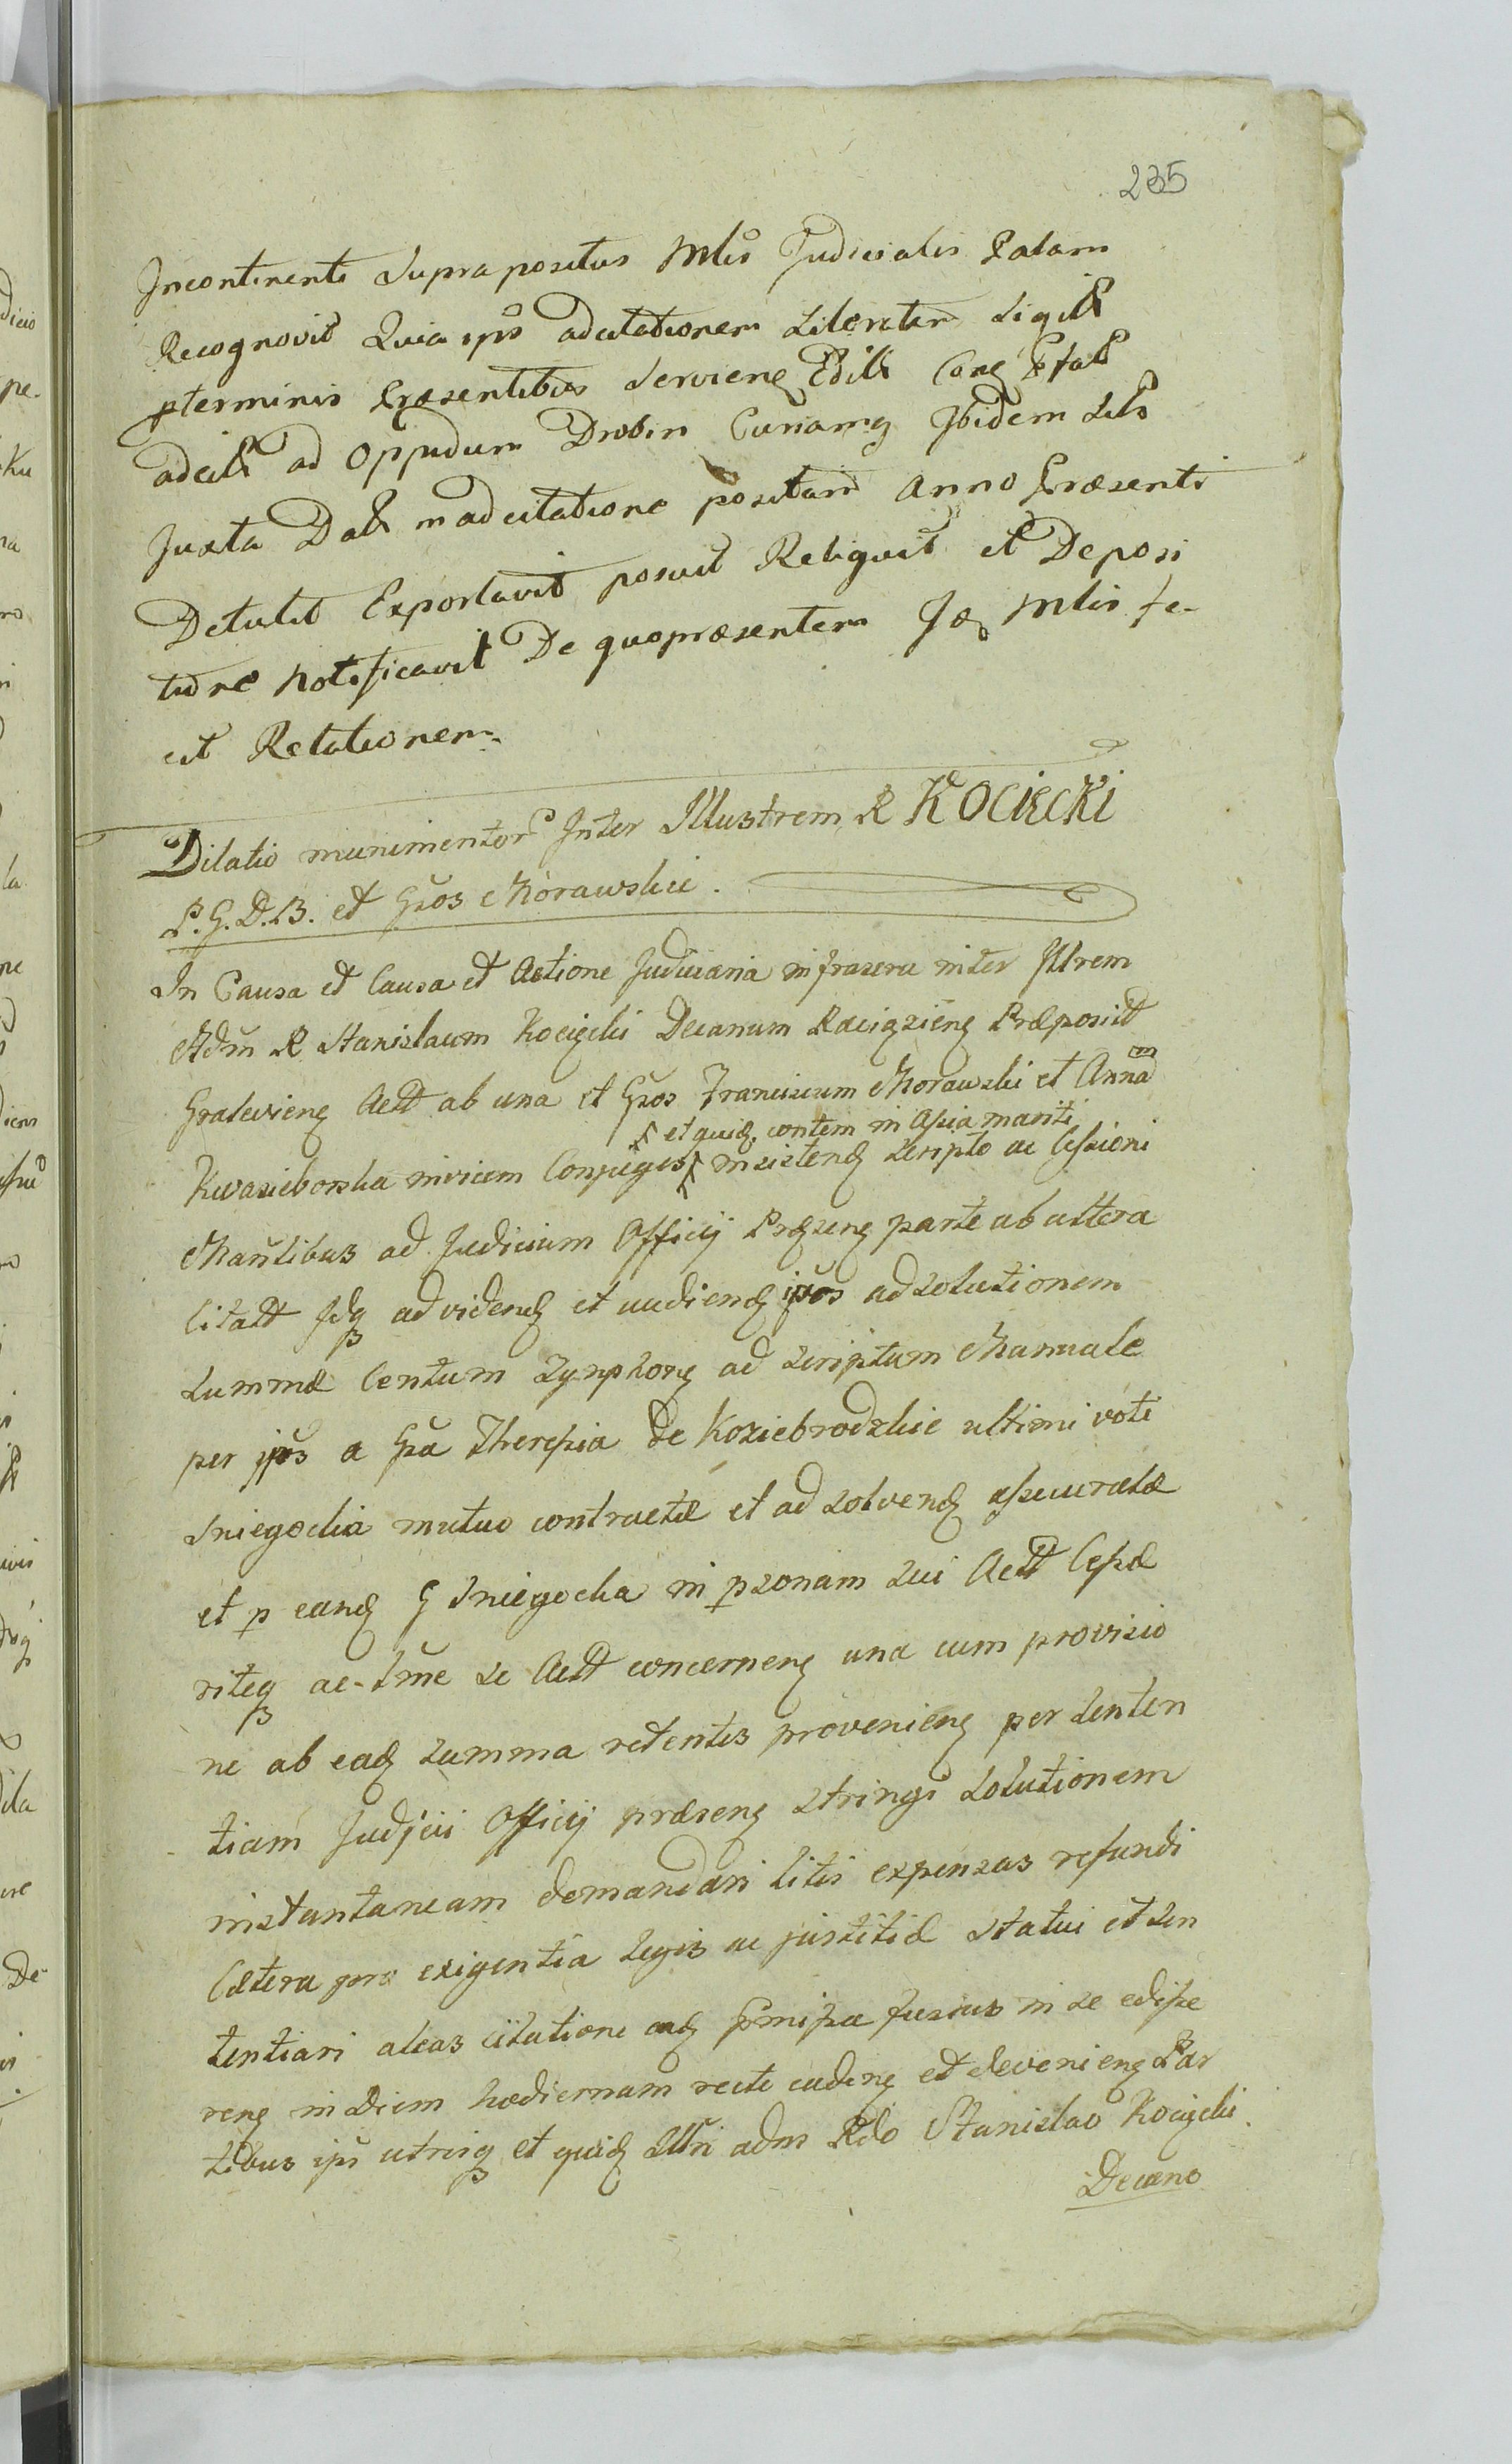 235
Incontinenti Suprapositus Mlis Judicialis Palam
Recognovit Quia ips adcitationem Literatem Sigill
pterminis Præsentibus Servieng Edill Cong Pfat
adcitt ad Oppidum Drobin Curiamq Ibidem Sitt
Juxta Datt in adcitatione positam Anno Præsenti
Detulit Exportavit posuit Reliquit et Deposi
ture Notificavit De quo præsentem Id Mlis fe-
cit Relationem
Dilatio munimentor Inter Illustrem R KOCIECKI
P.G.D.B. et Gsos Morawskie.
In Causa et Causa et Actione Judiciaria infrascra inter Illrem
Adm R Stanislaum Kocięcki Decanum Raciązieng Præposit
Gralevieng Actt ab una et Gsos Franciscum Morawski et Annam
et quid contem in assia mariti
Kwasieborska invicem Conjuges insistend scripto ac Cessioni
Manlibus ad Judicium Officij Præseng parte ab altera
Citatt Idq ad videnđ et audiend ipsos ad solutionem
Summæ Centum Zynphong ad scriptum Manuale
per ipos a Gsa Theressia de Koziebrodzkie ultimi voti
Sniegocka mutuo contractæ et ad solvend assecuratæ
et p eand G Sniegocka in psonam sui Actt Cessæ
riteq ac-tme se Actt concerneng una cum provisio
ne ab ead summa retentis provenieng per senten
tiam Judjcii Officij præseng stringi solutionem
instantaneam demandari litis expensas refundi
Cætera pro exigentia legis ac justitiæ statui et sen
tentiari alias citatione ead fusius in se edisse
reng in Diem hodiernam recte cadeng et devenieng Par
tibus ips utrisq et quid Illri adm Rdo Stanislao Kocięcki
Decano